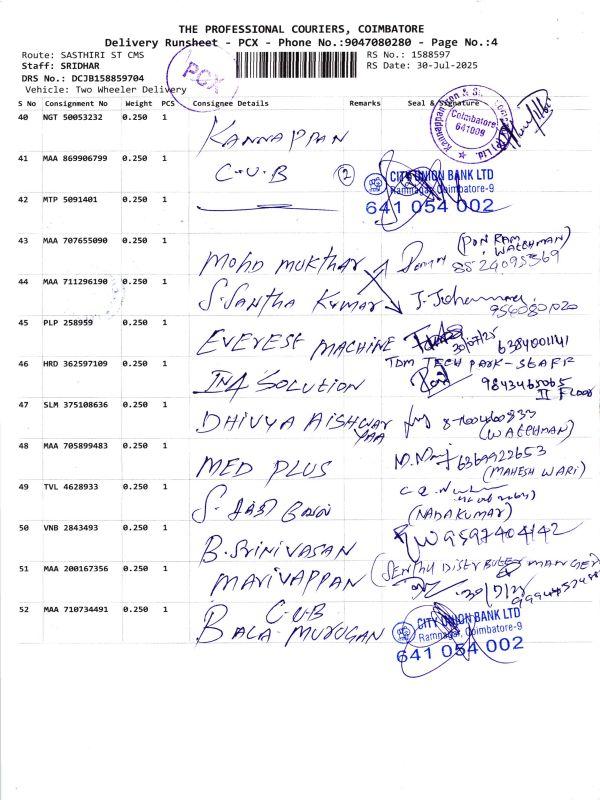 THE PROFESSIONAL COURIERS, COIMBATORE
Delivery Runsheet - PCX - Phone No.:9047080280 - Page No.:4
Route: SASTHIRI ST CMS
RS No.: 1588597
Staff: SRIDHAR
RS Date: 30-Jul-2025
DRS No.: DCJB158859704
Vehicle: Two Wheeler Delivery
PCX
S No Consignment No Weight PCS Consignee Details Remarks Seal & Signature
40 NGT 50053232 0.250 1 KANNAPPAN
Coimbatore 641009
41 MAA 869906799 0.250 1 C-U-B 2
CITY UNION BANK LTD
Ramnagar, Coimbatore-9
641 054 002
42 MTP 5091401 0.250 1
43 MAA 707655090 0.250 1 MOHD MUKTHAR (PON RAM WATCHMAN)
8524095369
44 MAA 711296190 1 S. SANTHA KUMAR
45 PLP 258959 0.250 1 EVEREST MACHINE 30/07/25 6384001141
46 HRD 362597109 0.250 1 IN4 SOLUTION TDM TECH PARK-STAFF
9843465065
II FLOOR
47 SLM 375108636 0.250 1 DHIVYA AISHWAR YAA
(WATCHMAN)
48 MAA 705899483 0.250 1 MED PLUS 6369922653
(MAHESH WARI)
49 TVL 4628933 0.250 1 S.
(NADAKUMAR)
50 VNB 2843493 0.250 1 B. SRINIVASAN 9597404142
51 MAA 200167356 0.250 1 MARIVAPPAN
52 MAA 710734491 0.250 1 C-U-B
BALA MURUGAN
CITY UNION BANK LTD
Ramnagar, Coimbatore-9
641 054 002